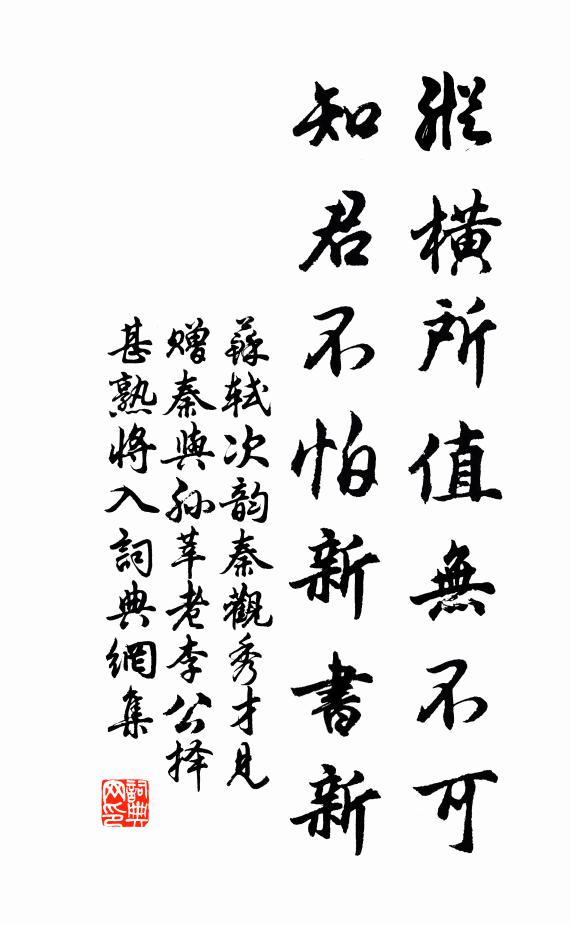 縱橫所值無不可
知君不怕新書新
蘇軾次韵秦觀秀才見
赠秦與孙莘老李公择
甚熟將入詞典網集
詞典网印